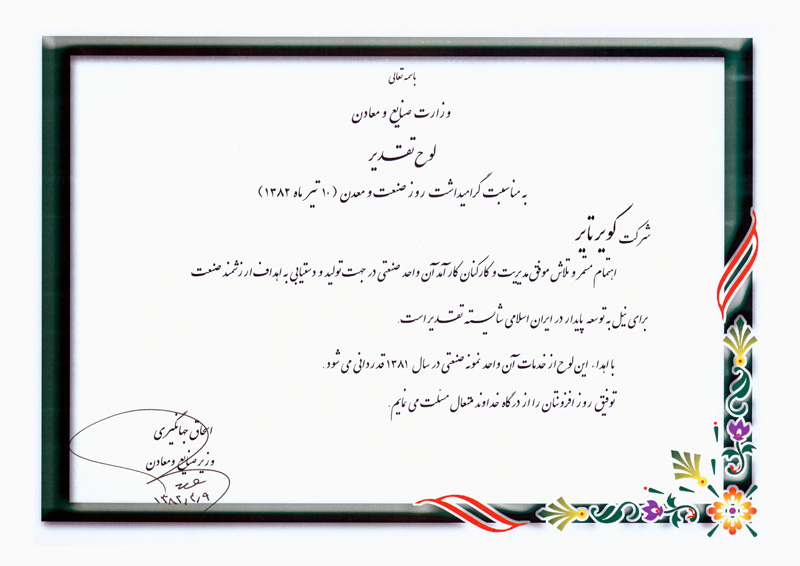 باسمه تعالی
وزارت صنایع و معادن
لوح تقدیر
به مناسبت گرامیداشت روز صنعت و معدن (۱۰ تیر ماه ۱۳۸۲)
شرکت کویر تایر
اهتمام مستمر و تلاش موفق مدیریت و کارکنان کارآمد آن واحد صنعتی در جهت تولید و دستیابی به اهداف ارزشمند صنعت
برای نیل به توسعه پایدار در ایران اسلامی شایسته تقدیر است.
با اهداء این لوح از خدمات آن واحد نمونه صنعتی در سال ۱۳۸۱ قدردانی می شود.
توفیق روز افزونتان را از درگاه خداوند متعال مسئلت می نمایم.
اسحاق جهانگیری
وزیر صنایع و معادن